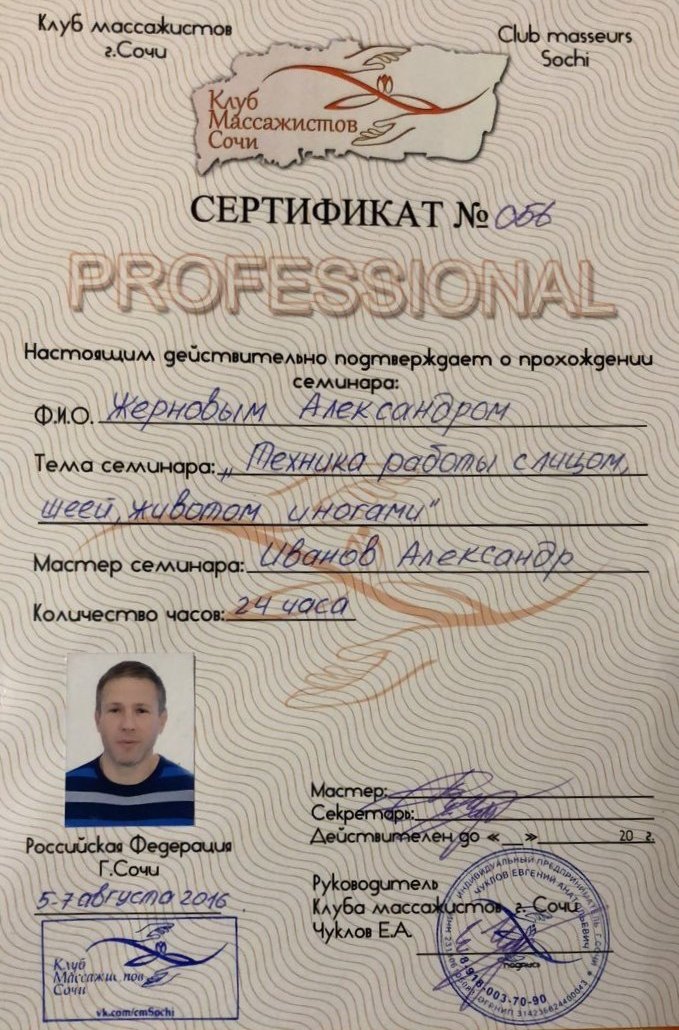 Клуб массажистов
г.Сочи
Club masseurs
Sochi
Клуб
Массажистов
Сочи
СЕРТИФИКАТ № 056
PROFESSIONAL
Настоящим действительно подтверждает о прохождении
семинара:
Ф.И.О. Жерновым Александром
Тема семинара: „Техника работы с лицом,
шеей, животом и ногами"
Мастер семинара: Иванов Александр
Количество часов: 24 часа
Мастер:
Секретарь:
Действителен до «__» 20 г.
Российская Федерация
Г.Сочи
5-7 августа 2016
Руководитель
Клуба массажистов г. Сочи
Чуклов Е.А.
Клуб
Массажистов
Сочи
vk.com/cmSochi
ИНДИВИДУАЛЬНЫЙ ПРЕДПРИНИМАТЕЛЬ Г. СОЧИ
ЧУКЛОВ ЕВГЕНИЙ АНАТОЛЬЕВИЧ
подпись
8-918-003-70-90
ОГРНИП 314236624400043